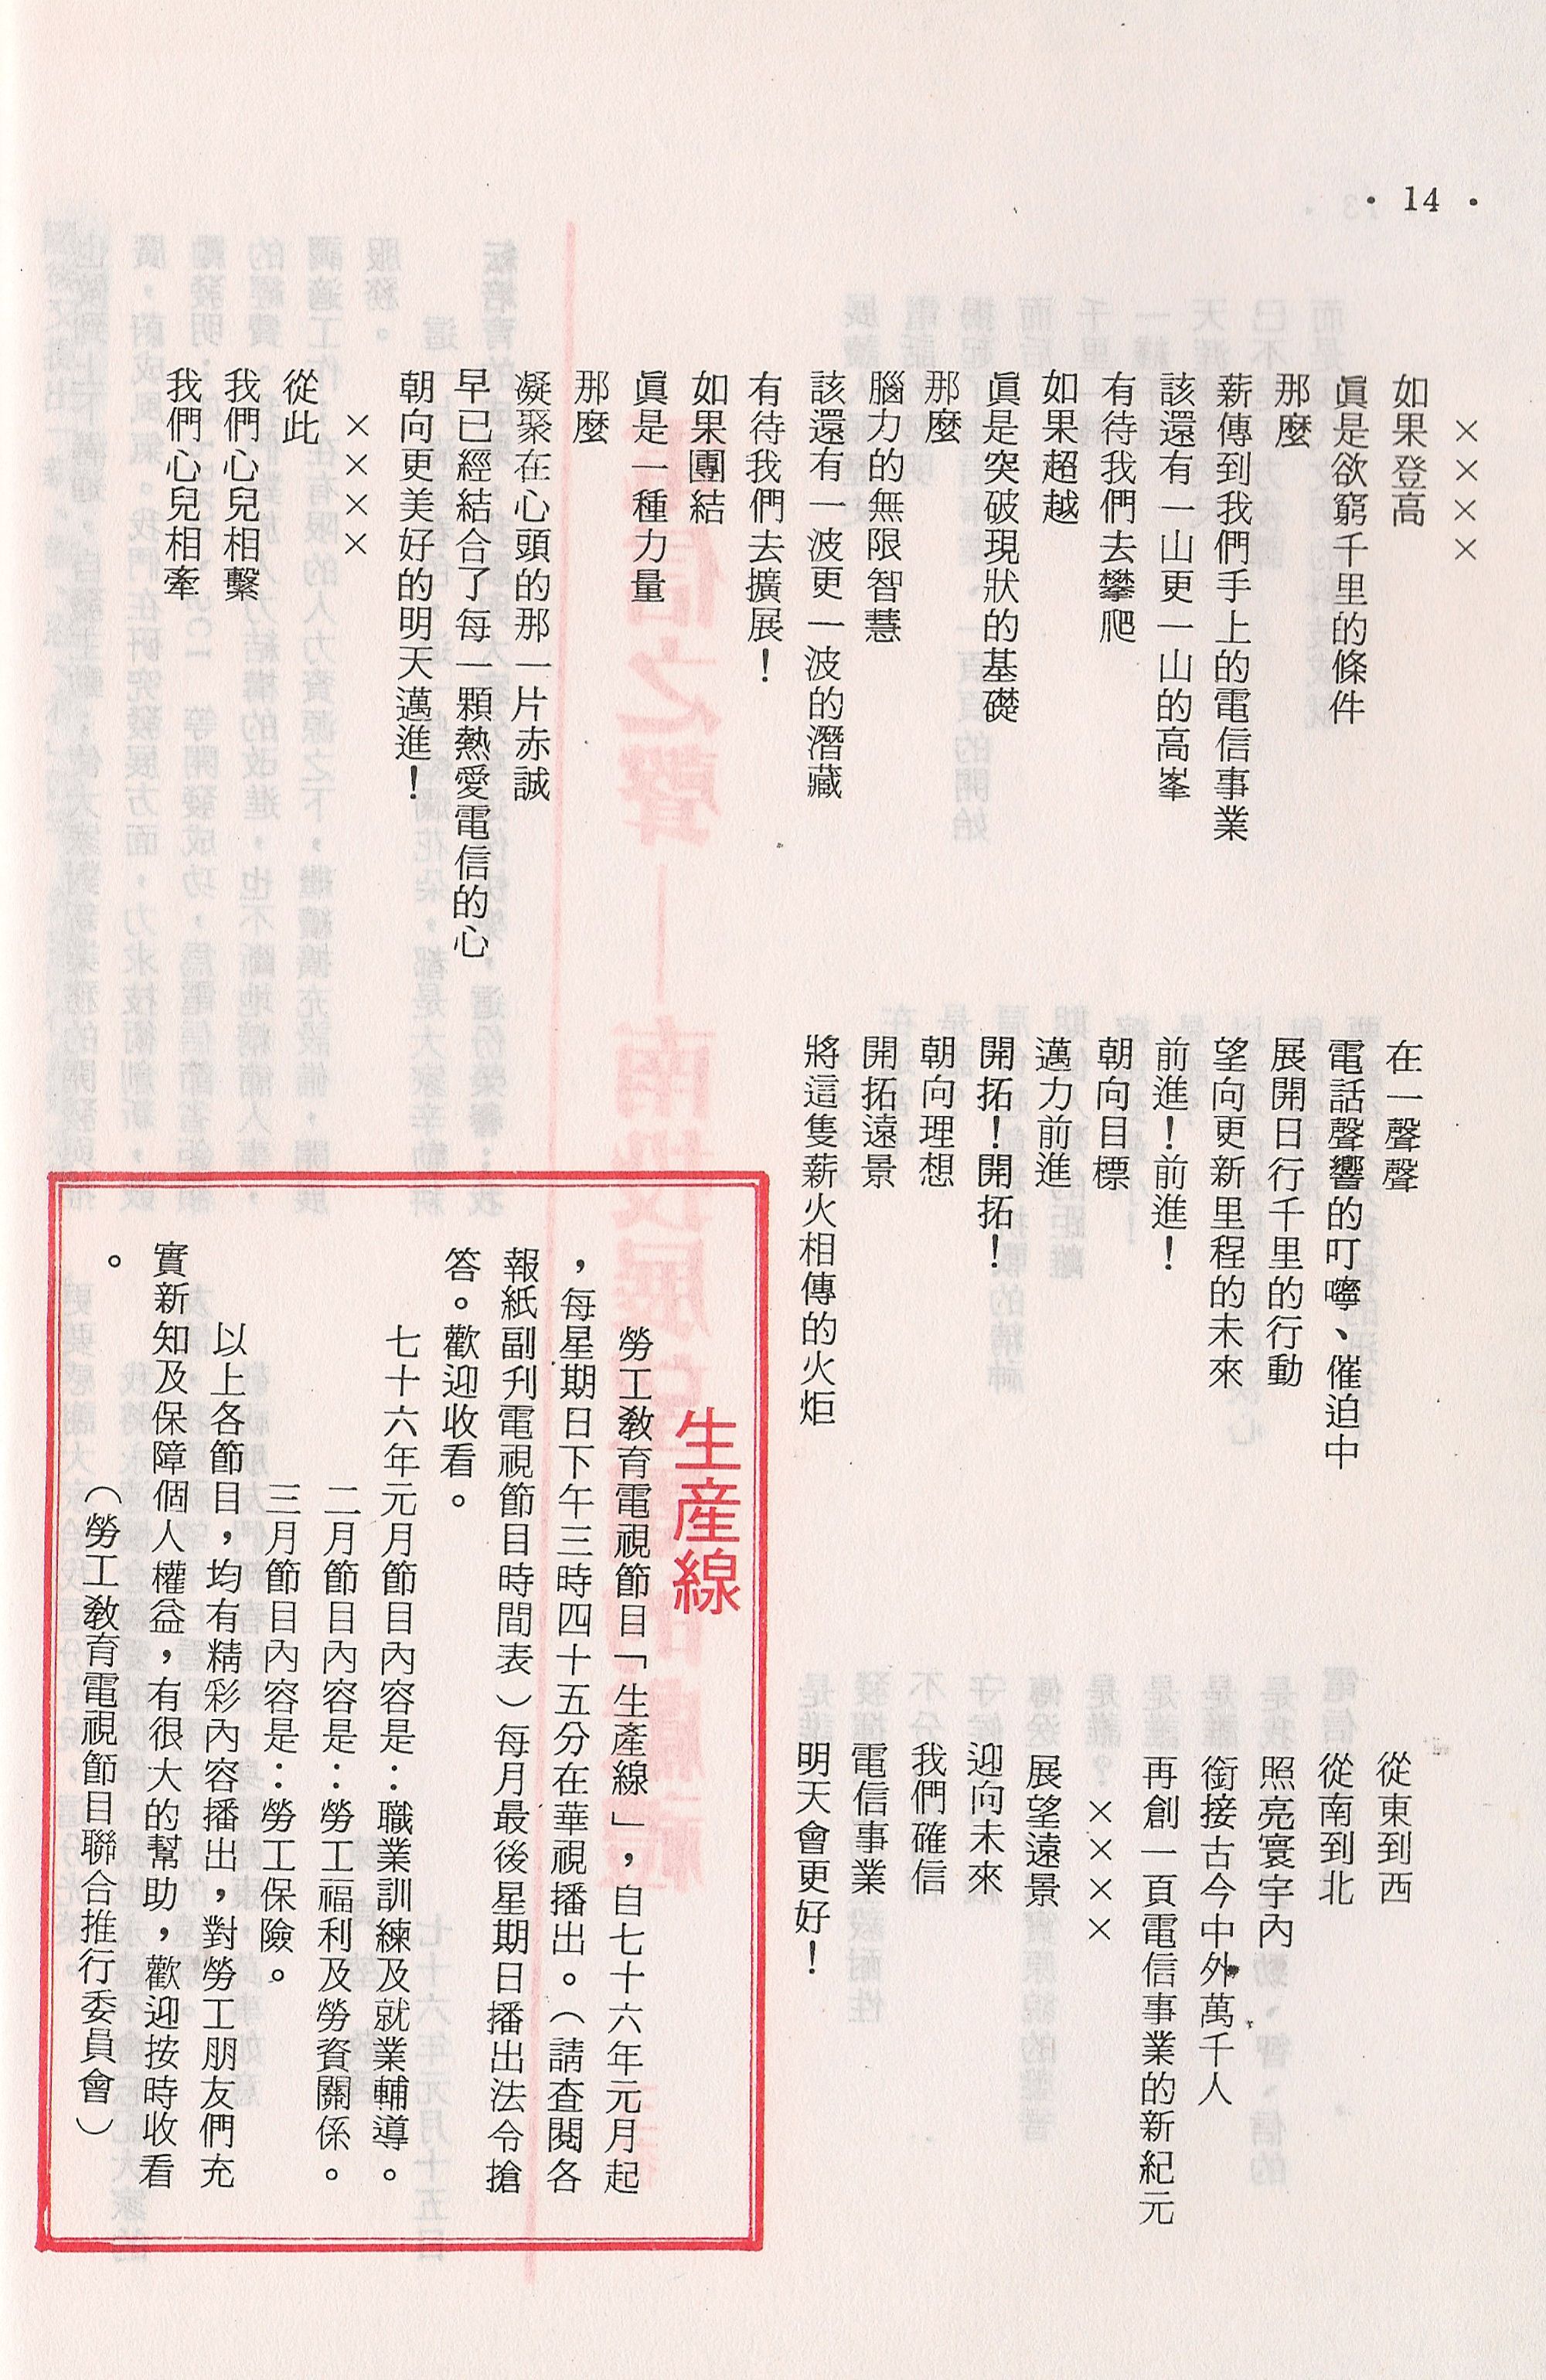 • 14 •
××××
如果登高
眞是欲窮千里的條件
那麼
薪傳到我們手上的電信事業
該還有一山更一山的高峯
有待我們去攀爬
如果超越
眞是突破現狀的基礎
那麼
腦力的無限智慧
該還有一波更一波的潛藏
有待我們去擴展！
如果團結
眞是一種力量
那麼
凝聚在心頭的那一片赤誠
早已經結合了每一顆熱愛電信的心
朝向更美好的明天邁進！
××××
從此
我們心兒相繫
我們心兒相牽
在一聲聲
電話聲響的叮嚀、催迫中
展開日行千里的行動
望向更新里程的未來
前進！前進！
朝向目標
邁力前進
開拓！開拓！
朝向理想
開拓遠景
將這隻薪火相傳的火炬
從東到西
從南到北
照亮寰宇內
銜接古今中外萬千人
再創一頁電信事業的新紀元
××××
展望遠景
迎向未來
我們確信
電信事業
明天會更好！
生產線
勞工敎育電視節目「生產線」，自七十六年元月起
，每星期日下午三時四十五分在華視播出。（請查閱各
報紙副刋電視節目時間表）每月最後星期日播出法令搶
答。歡迎收看。
七十六年元月節目內容是：職業訓練及就業輔導。
二月節目內容是：勞工福利及勞資關係。
三月節目內容是：勞工保險。
以上各節目，均有精彩內容播出，對勞工朋友們充
實新知及保障個人權益，有很大的幫助，歡迎按時收看
。
（勞工敎育電視節目聯合推行委員會）